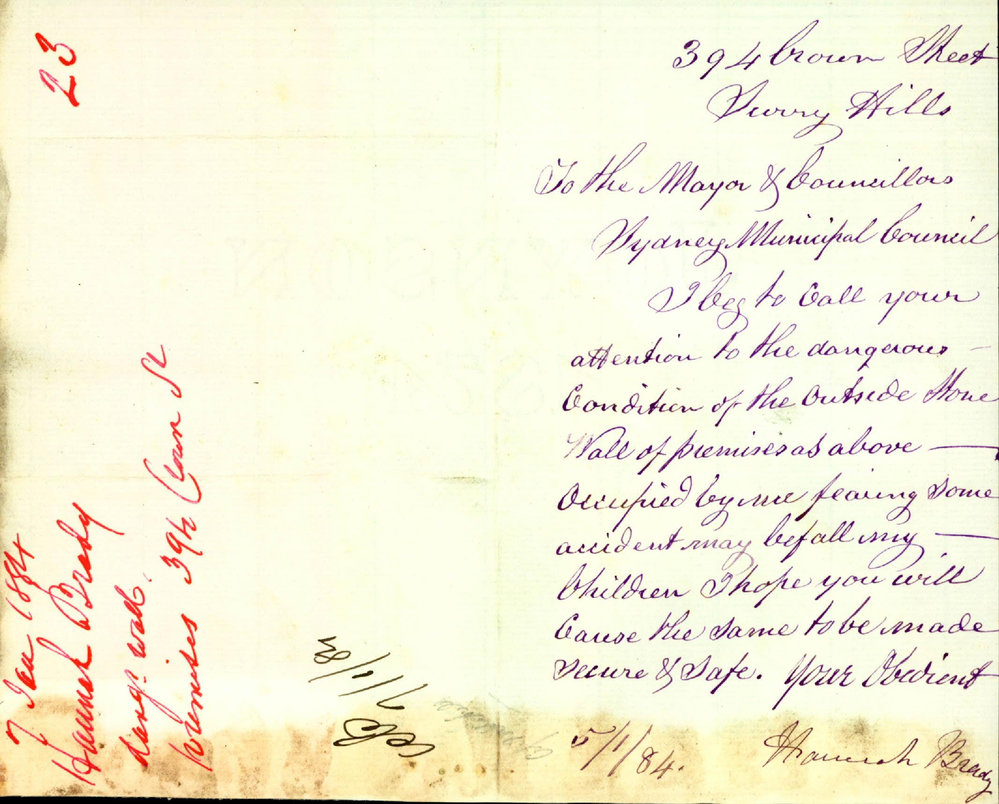 394 Crown Street
Surry Hills
To the Mayor & Councillors
Sydney Municipal Council
I beg to Call your
attention to the dangerous
Condition of the outside Stone
Wall of premises as above —
Occupied by me fearing some
accident may befall my —
Children I hope you will
Cause the same to be made
secure & safe. your Obedient
5/1/84.
Hannah Brady
23
7 Jan 1884
Hannah Brady
dang.s wall
premises 394 Crown St
7/1/84